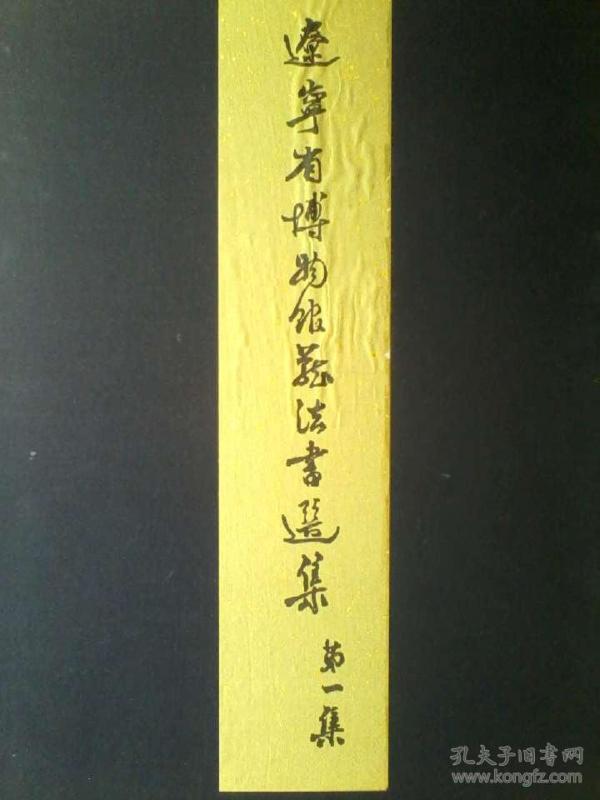 遼寧省博物館藏法書選集
第一集
孔夫子旧书网
www.kongfz.com